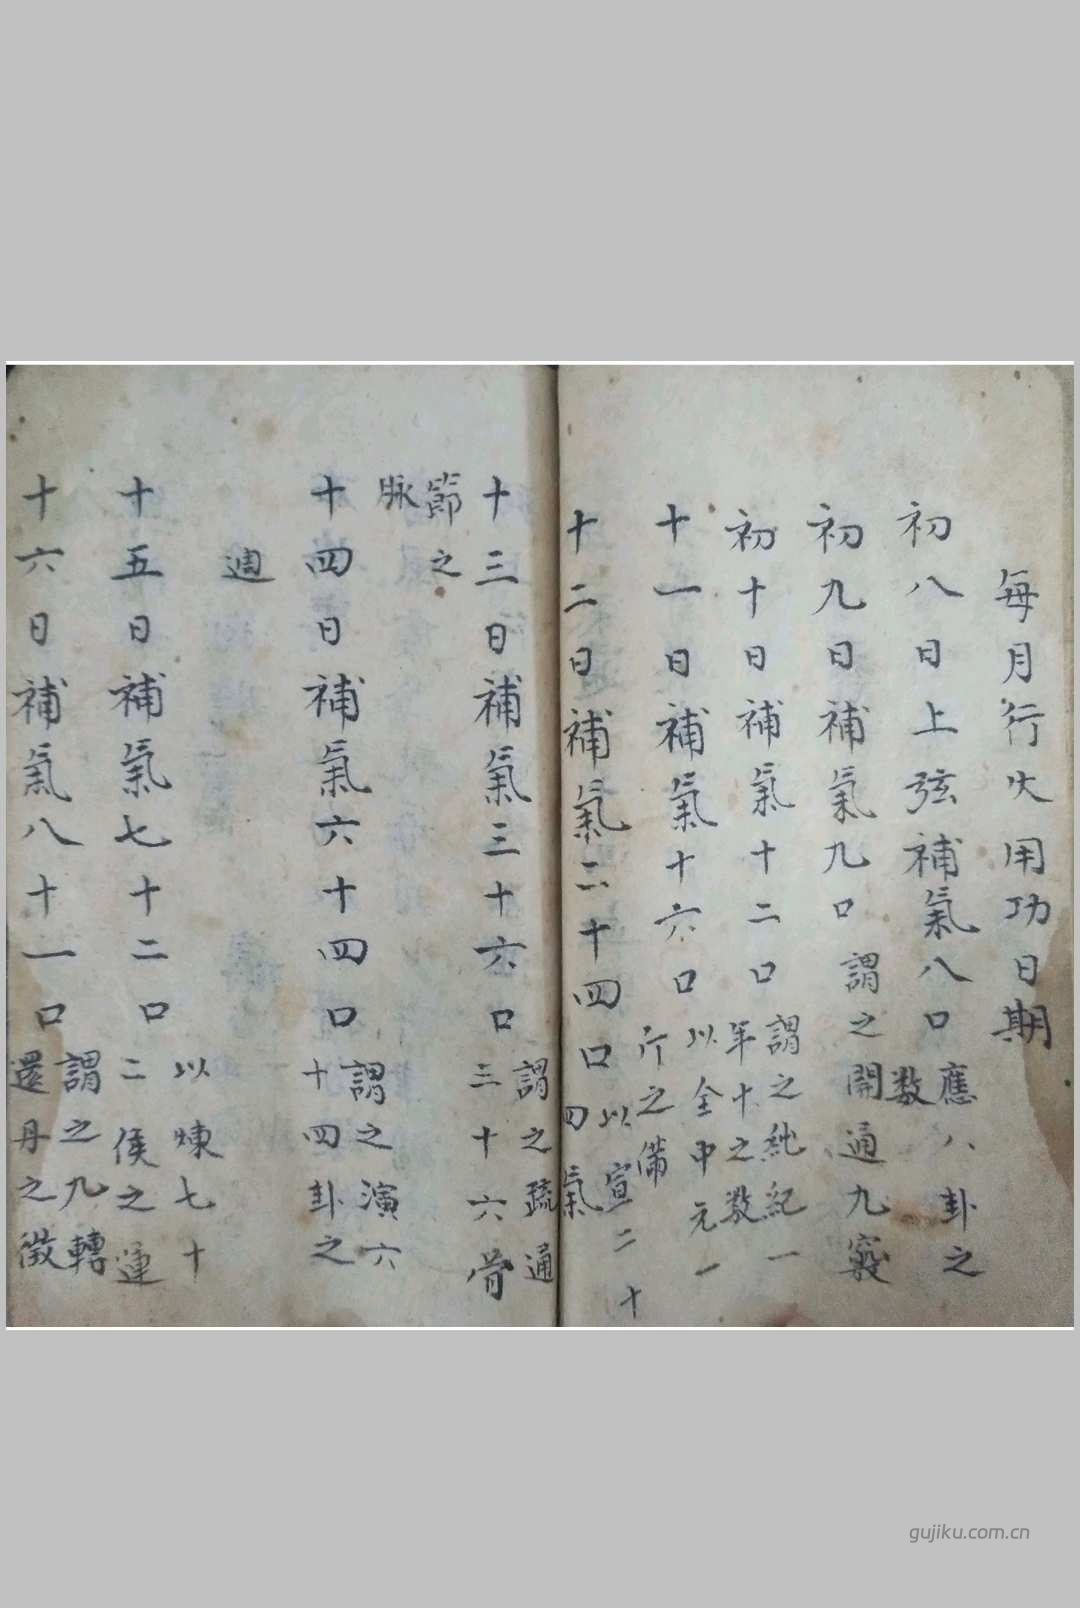 每月行火用功日期
初八日上弦補氣八口應八卦之
数
初九日補氣九口謂之開通九竅
初十日補氣十二口謂之紀一
年十之数
十一日補氣十六口以全中元一
斤之備
十二日補氣二十四口以宣二十
四氣
十三日補氣三十六口謂之疏通
三十六骨
節之
脉
十四日補氣六十四口謂之演六
十四卦之
週
十五日補氣七十二口以煉七十
二侯之運
十六日補氣八十一口謂之九轉
還丹之徵
gujiku.com.cn